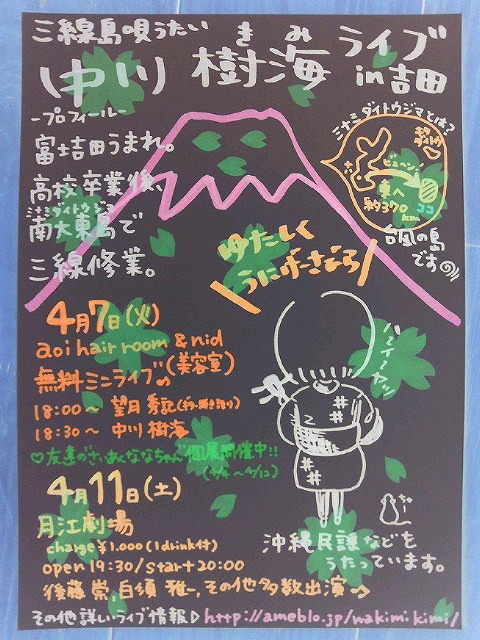 三線島唄うたい
中川 樹海 ライブ
きみ
in 吉田
-プロフィール-
富士吉田うまれ。
高校卒業後、
ミナミダイトウジマ
南大東島で
三線修業。
ミナミダイトウジマとは？
東へ
約370km
ココ
台風の島
です
ゆたしく
うにげーさびら
4月7日(火)
aoi hair room & nid
(美容室)
無料ミニライブ
18:00～ 望月秀記(ギター弾き語り)
18:30～ 中川樹海
♡友達のさいあくななちゃん個展開催中!!
(4/4～4/12)
4月11日(土)
月江劇場
charge ¥1.000 (1drink付)
open 19:30/start 20:00
後藤 崇、白須 雅一、その他多数出演
ハーイーヤッ
沖縄民謡などを
うたっています。
その他詳しいライブ情報▷http://ameblo.jp/makimikimi/